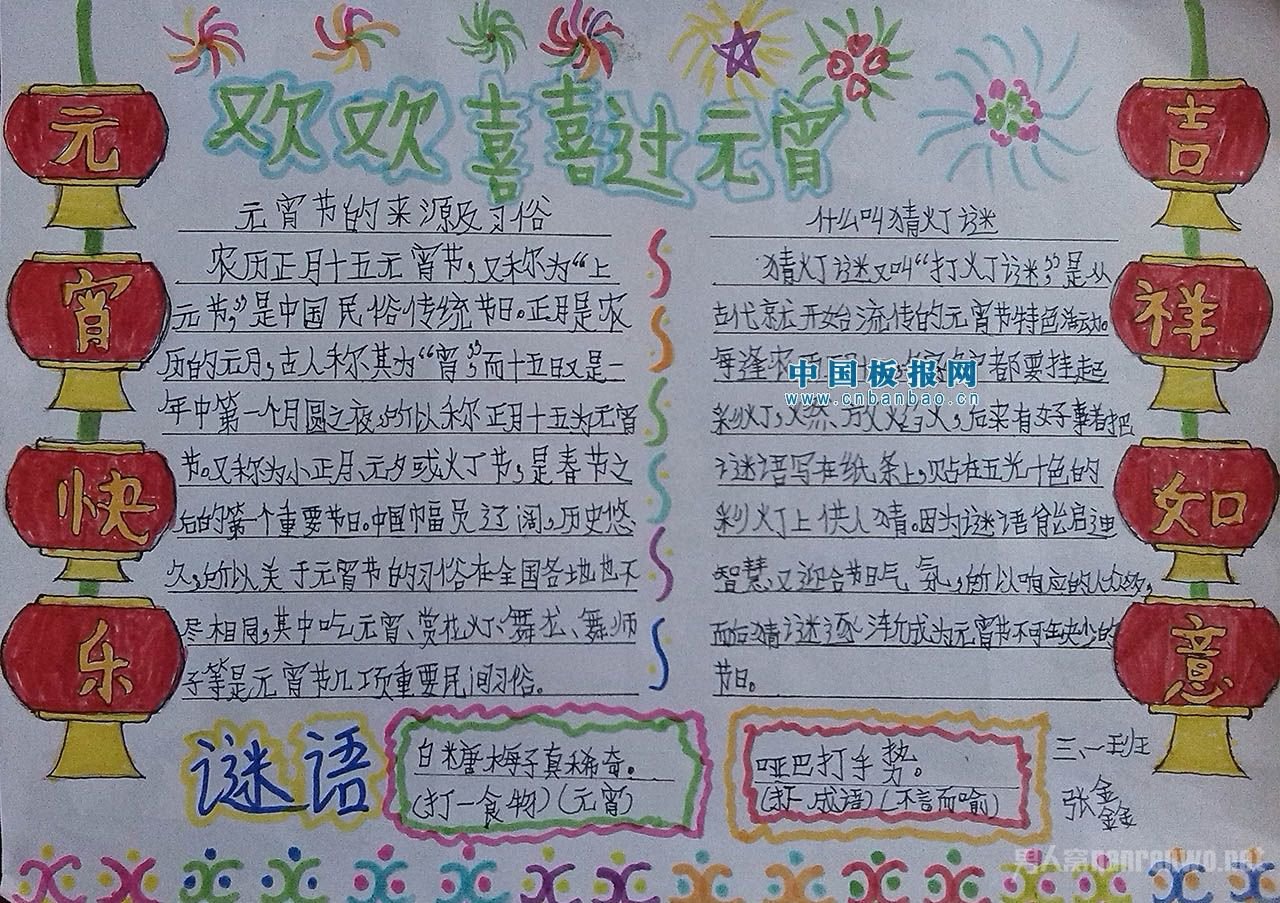 欢欢喜喜过元宵
元宵快乐
吉祥如意
元宵节的来源及习俗
农历正月十五元宵节,又称为“上
元节,”是中国民俗传统节日。正月是农
历的元月,古人称其为“宵,”而十五日又是一
年中第一个月圆之夜,所以称正月十五为元宵
节。又称为小正月、元夕或灯节,是春节之
后的第一个重要节日。中国幅员辽阔,历史悠
久,所以关于元宵节的习俗在全国各地也不
尽相同,其中吃元宵、赏花灯、舞龙、舞狮
子等是元宵节几项重要民间习俗。
什么叫猜灯谜
猜灯谜又叫“打灯谜,”是从
古代就开始流传的元宵节特色活动。
每逢农历正月十 都要挂起
彩灯,燃放焰火,后来有好事者把
谜语写在纸条上,贴在五光十色的
彩灯上供人猜。因为谜语能启迪
智慧又迎合节日气氛,所以响应的人众多,
而后猜谜逐渐成为元宵节不可缺少的
节日。
中国板报网
www.cnbanbao.cn
谜语
白糖梅子真稀奇。
(打一食物)(元宵)
哑巴打手势。
(打一成语)(不言而喻)
三、一班
张鑫鑫
男人窝nanrenwo.net